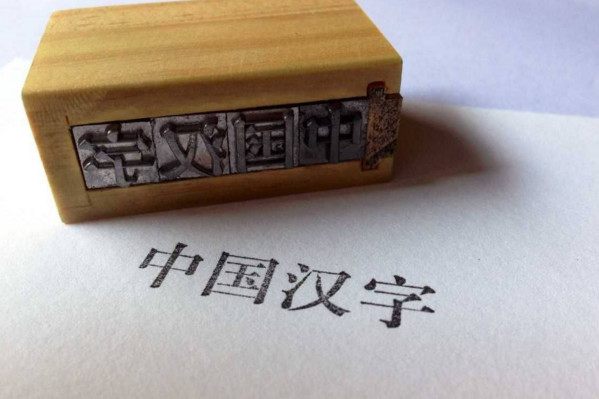 中国汉字